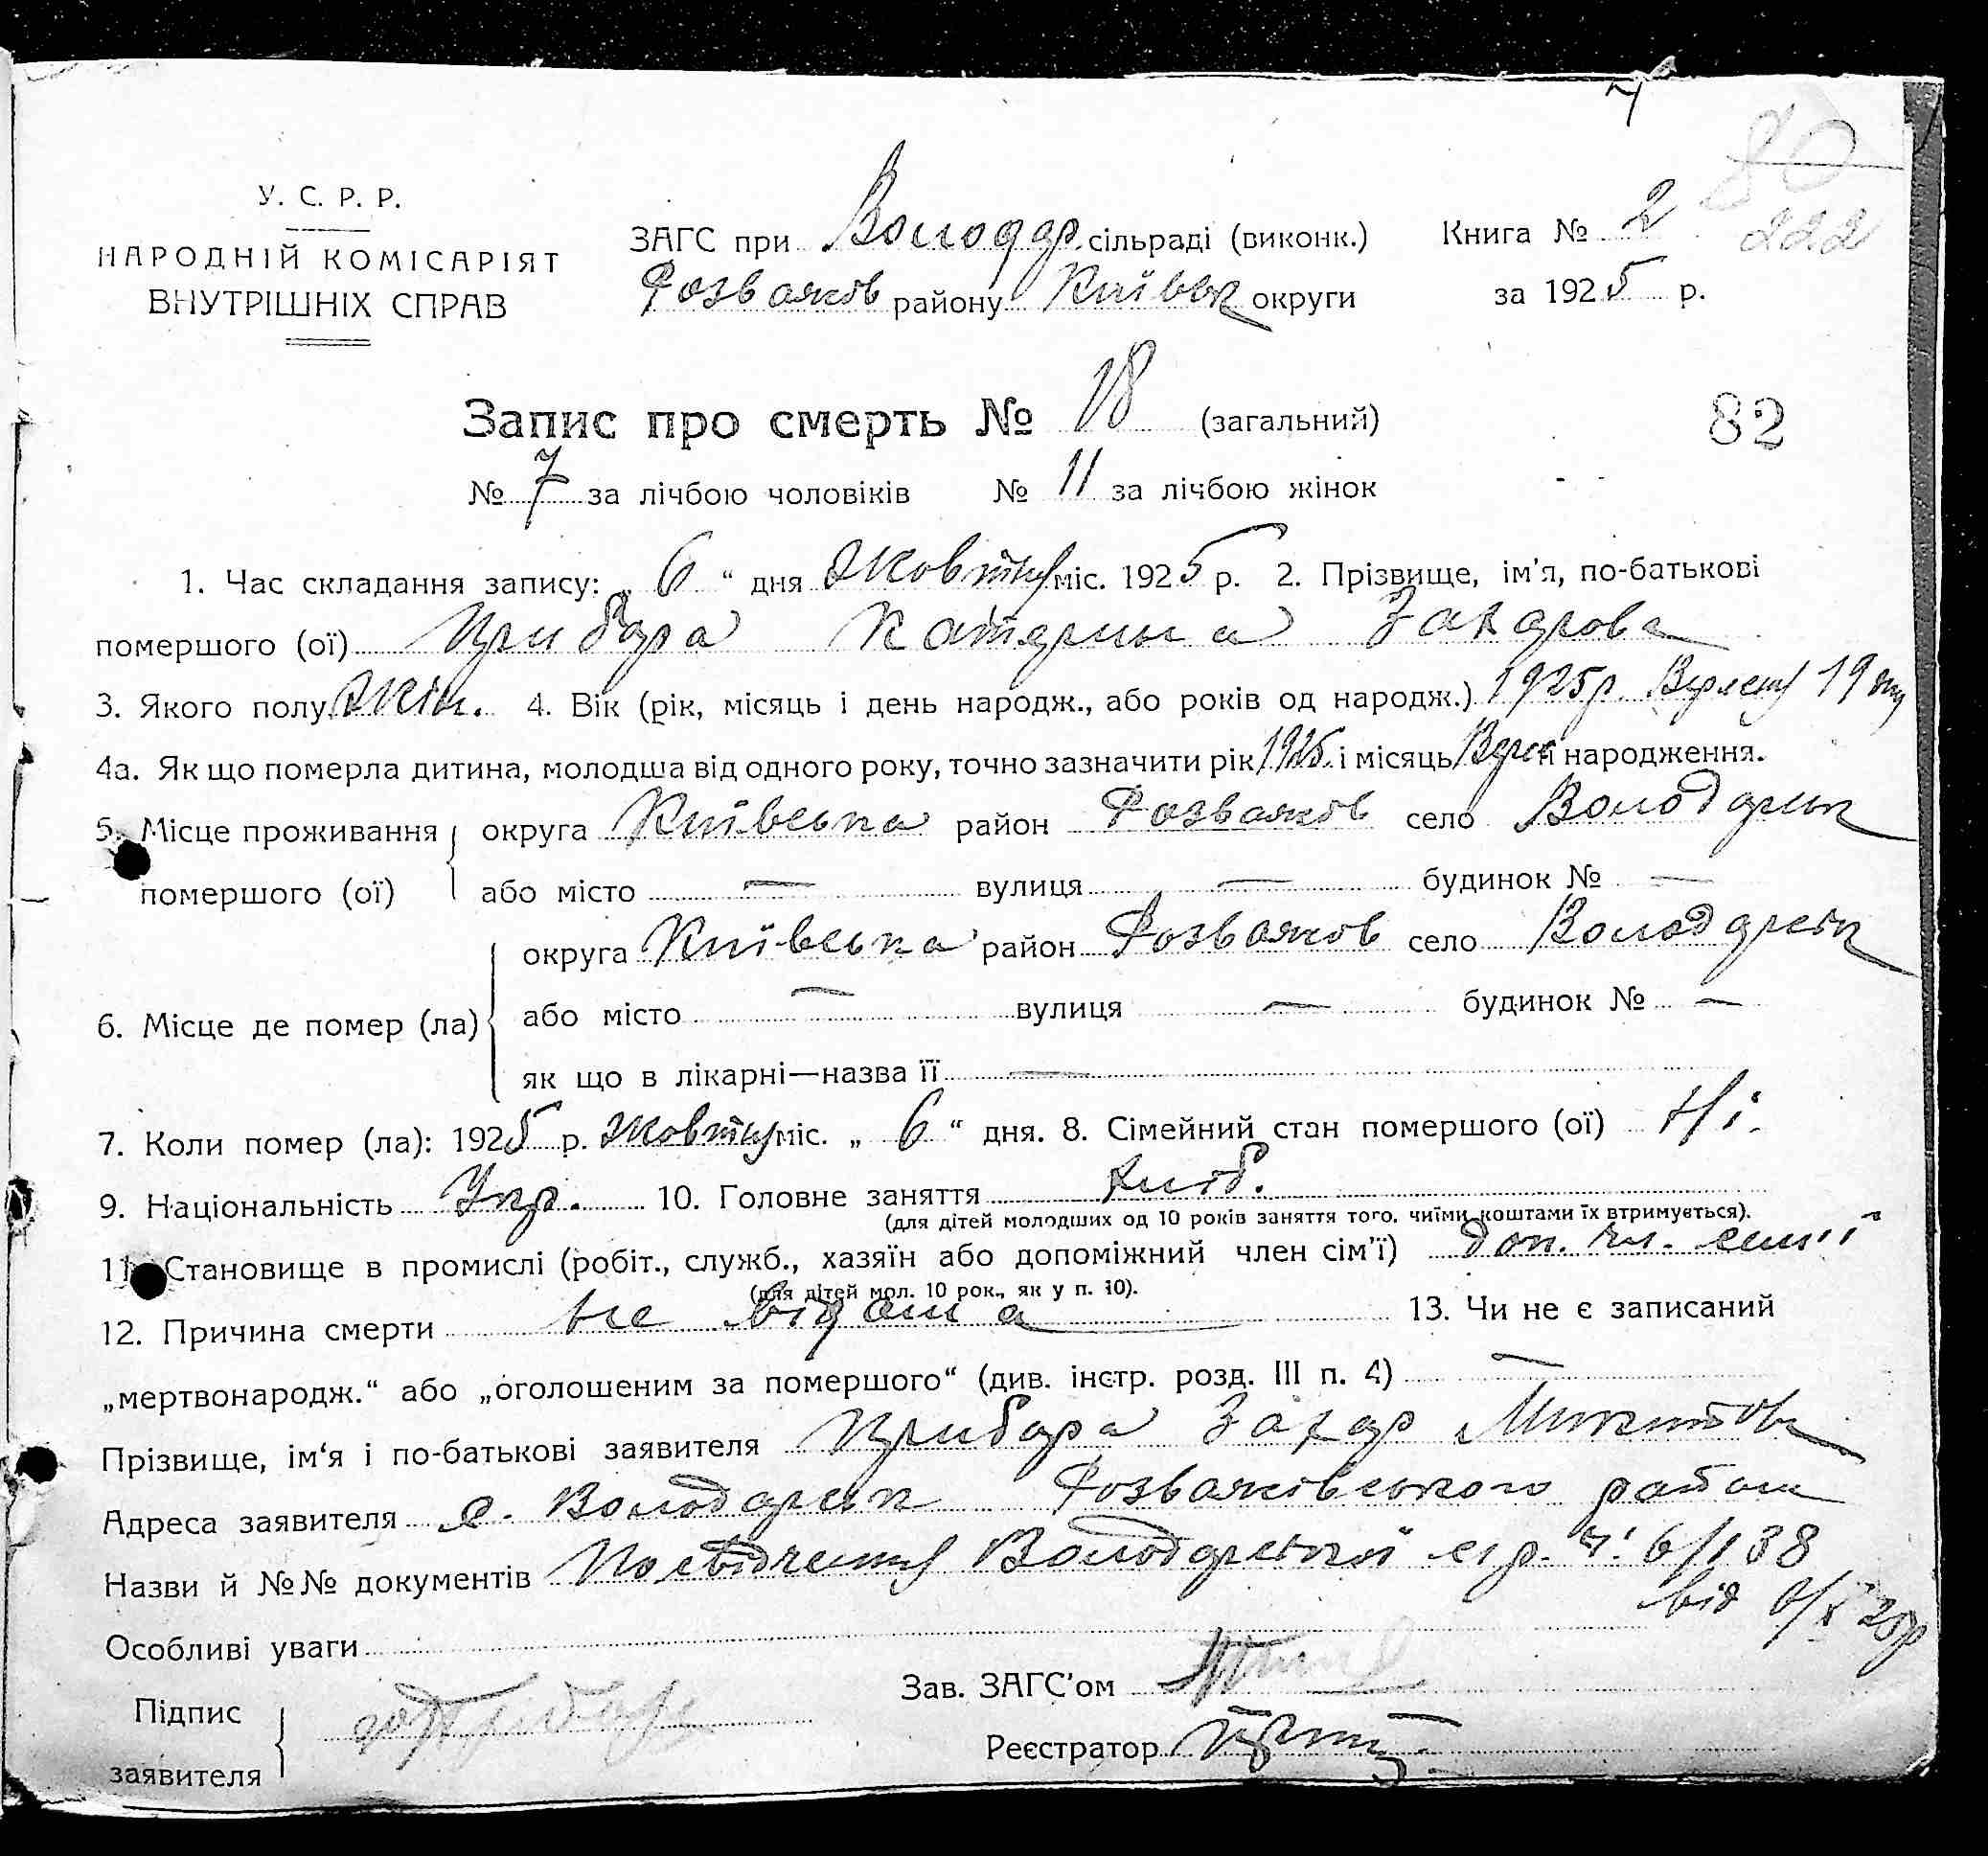 80
222
У. С. Р. Р.
НАРОДНІЙ КОМІСАРІЯТ
ВНУТРІШНІХ СПРАВ
ЗАГС при Володар. сільраді (виконк.)
Розважів району Київськ округи
Книга № 2
за 1925 р.
Запис про смерть № 18 (загальний)
82
№ 7 за лічбою чоловіків № 11 за лічбою жінок
1. Час складання запису: „ 6 “ дня Жовтня міс. 1925 р. 2. Прізвище, ім’я, по-батькові
помершого (ої) Прибора Катерина Захарова
3. Якого полу Жін. 4. Вік (рік, місяць і день народж., або років од народж.) 1925 р. Вересня 19 дня
4а. Як що померла дитина, молодша від одного року, точно зазначити рік 1925 і місяць Верес її народження.
5. Місце проживання округа Київська район Розважів село Володарськ
помершого (ої) або місто — вулиця — будинок № —
округа Київська район Розважів село Володарськ
6. Місце де помер (ла) або місто — вулиця — будинок № —
як що в лікарні—назва її —
7. Коли помер (ла): 1925 р. Жовтня міс. „ 6 “ дня. 8. Сімейний стан помершого (ої) Ні.
9. Національність Укр. 10. Головне заняття хліб.
(для дітей молодших од 10 років заняття того, чиїми коштами їх втримується).
11. Становище в промислі (робіт., служб., хазяїн або допоміжний член сім’ї) доп. чл. семії
(для дітей мол. 10 рок., як у п. 10).
12. Причина смерти не відома 13. Чи не є записаний
„мертвонародж.“ або „оголошеним за помершого“ (див. інстр. розд. III п. 4) —
Прізвище, ім‘я і по-батькові заявителя Прибора Захар Микитов
Адреса заявителя с. Володарськ Розважівського району
Назви й №№ документів Посвідчення Володарської с/р. ч. 6/138
від 6/X 25р
Особливі уваги
Зав. ЗАГС’ом
Підпис
заявителя
Реєстратор